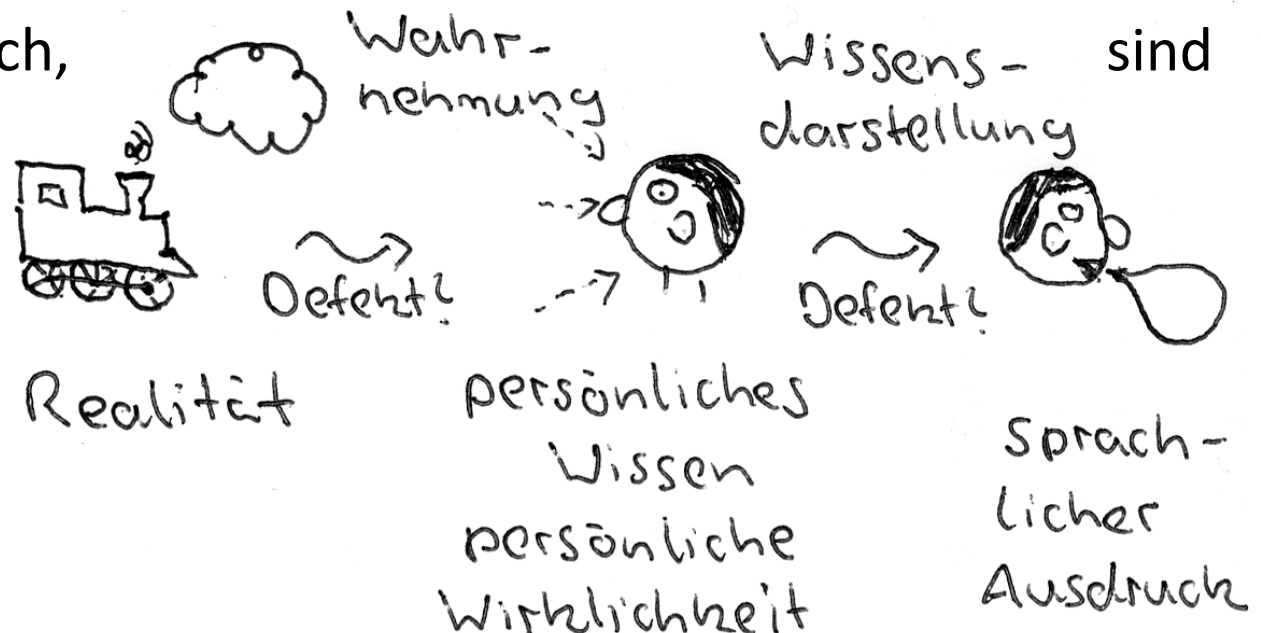 ch,
sind
Wahr-
nehmung
Wissens-
darstellung
Defekt?
Defekt?
Realität
persönliches
Wissen
persönliche
Wirklichkeit
sprach-
licher
Ausdruck